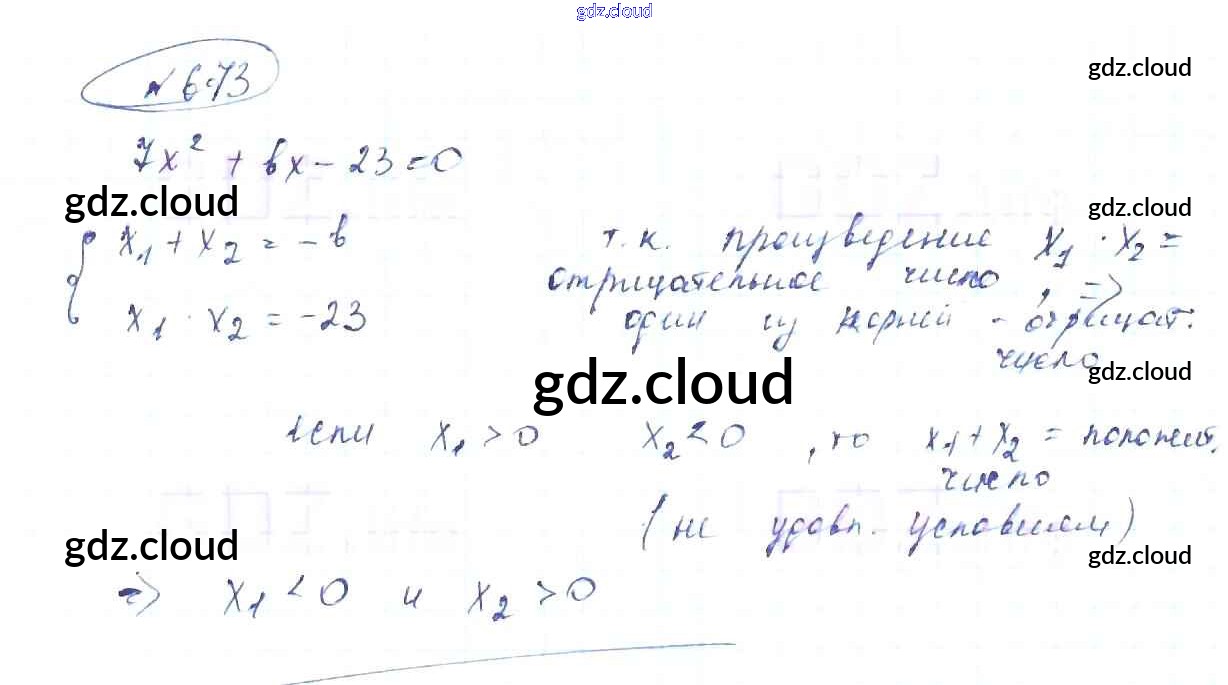 gdz.cloud
№ 673
gdz.cloud
7x² + bx - 23 = 0
gdz.cloud
gdz.cloud
x₁ + x₂ = - b
x₁ · x₂ = -23
т. к. произведение x₁ · x₂ =
отрицательное число, =>
один из корней - отрицат.
число
gdz.cloud
gdz.cloud
если x₁ > 0 x₂ < 0, то x₁ + x₂ = положит.
число
(не удовл. условиям)
gdz.cloud
gdz.cloud
=> x₁ < 0 и x₂ > 0